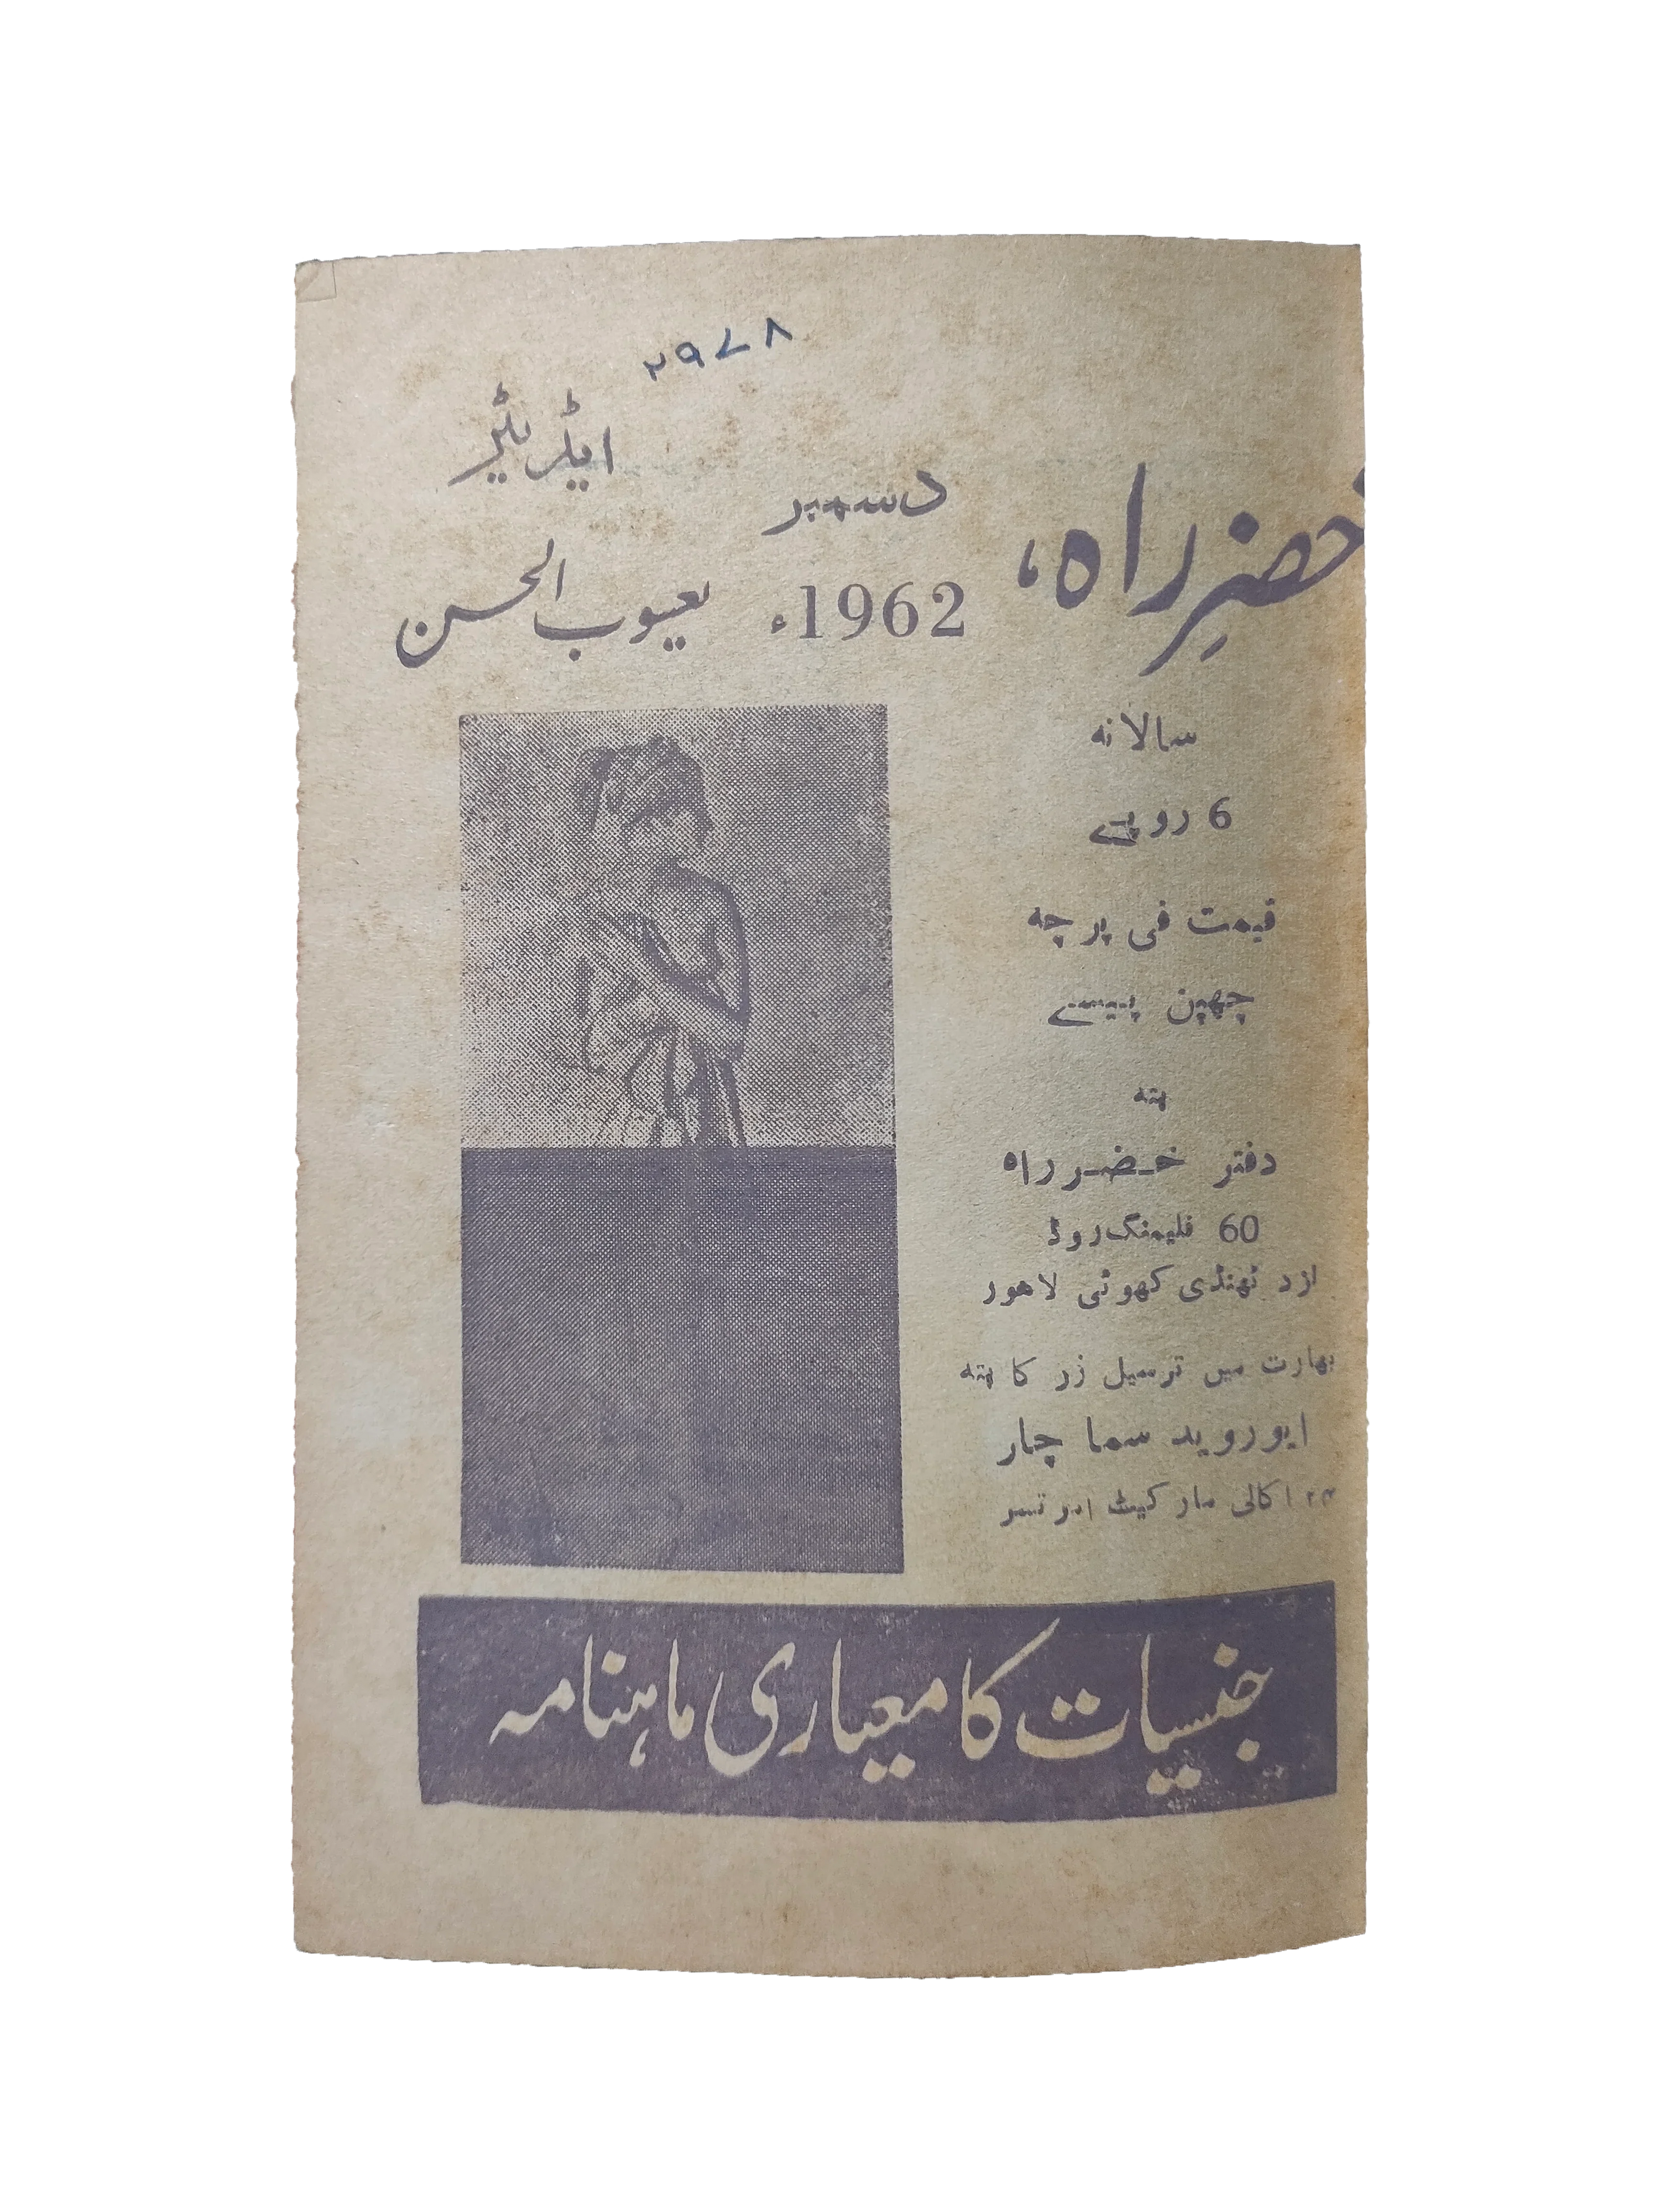 ۲۹۷۸
ایڈیٹر
خضرِ راہ،
دسمبر
1962ء
یعسوب الحسن
سالانہ
6 روپے
قیمت فی پرچہ
چھپن پیسے
پتہ
دفتر خضر راہ
60 فلیمنگ روڈ
نزد ٹھنڈی کھوئی لاھور
بھارت میں ترسیل زر کا پتہ
ایوروید سما چار
اکالی مارکیٹ امرتسر
جنسیات کا معیاری ماہنامہ